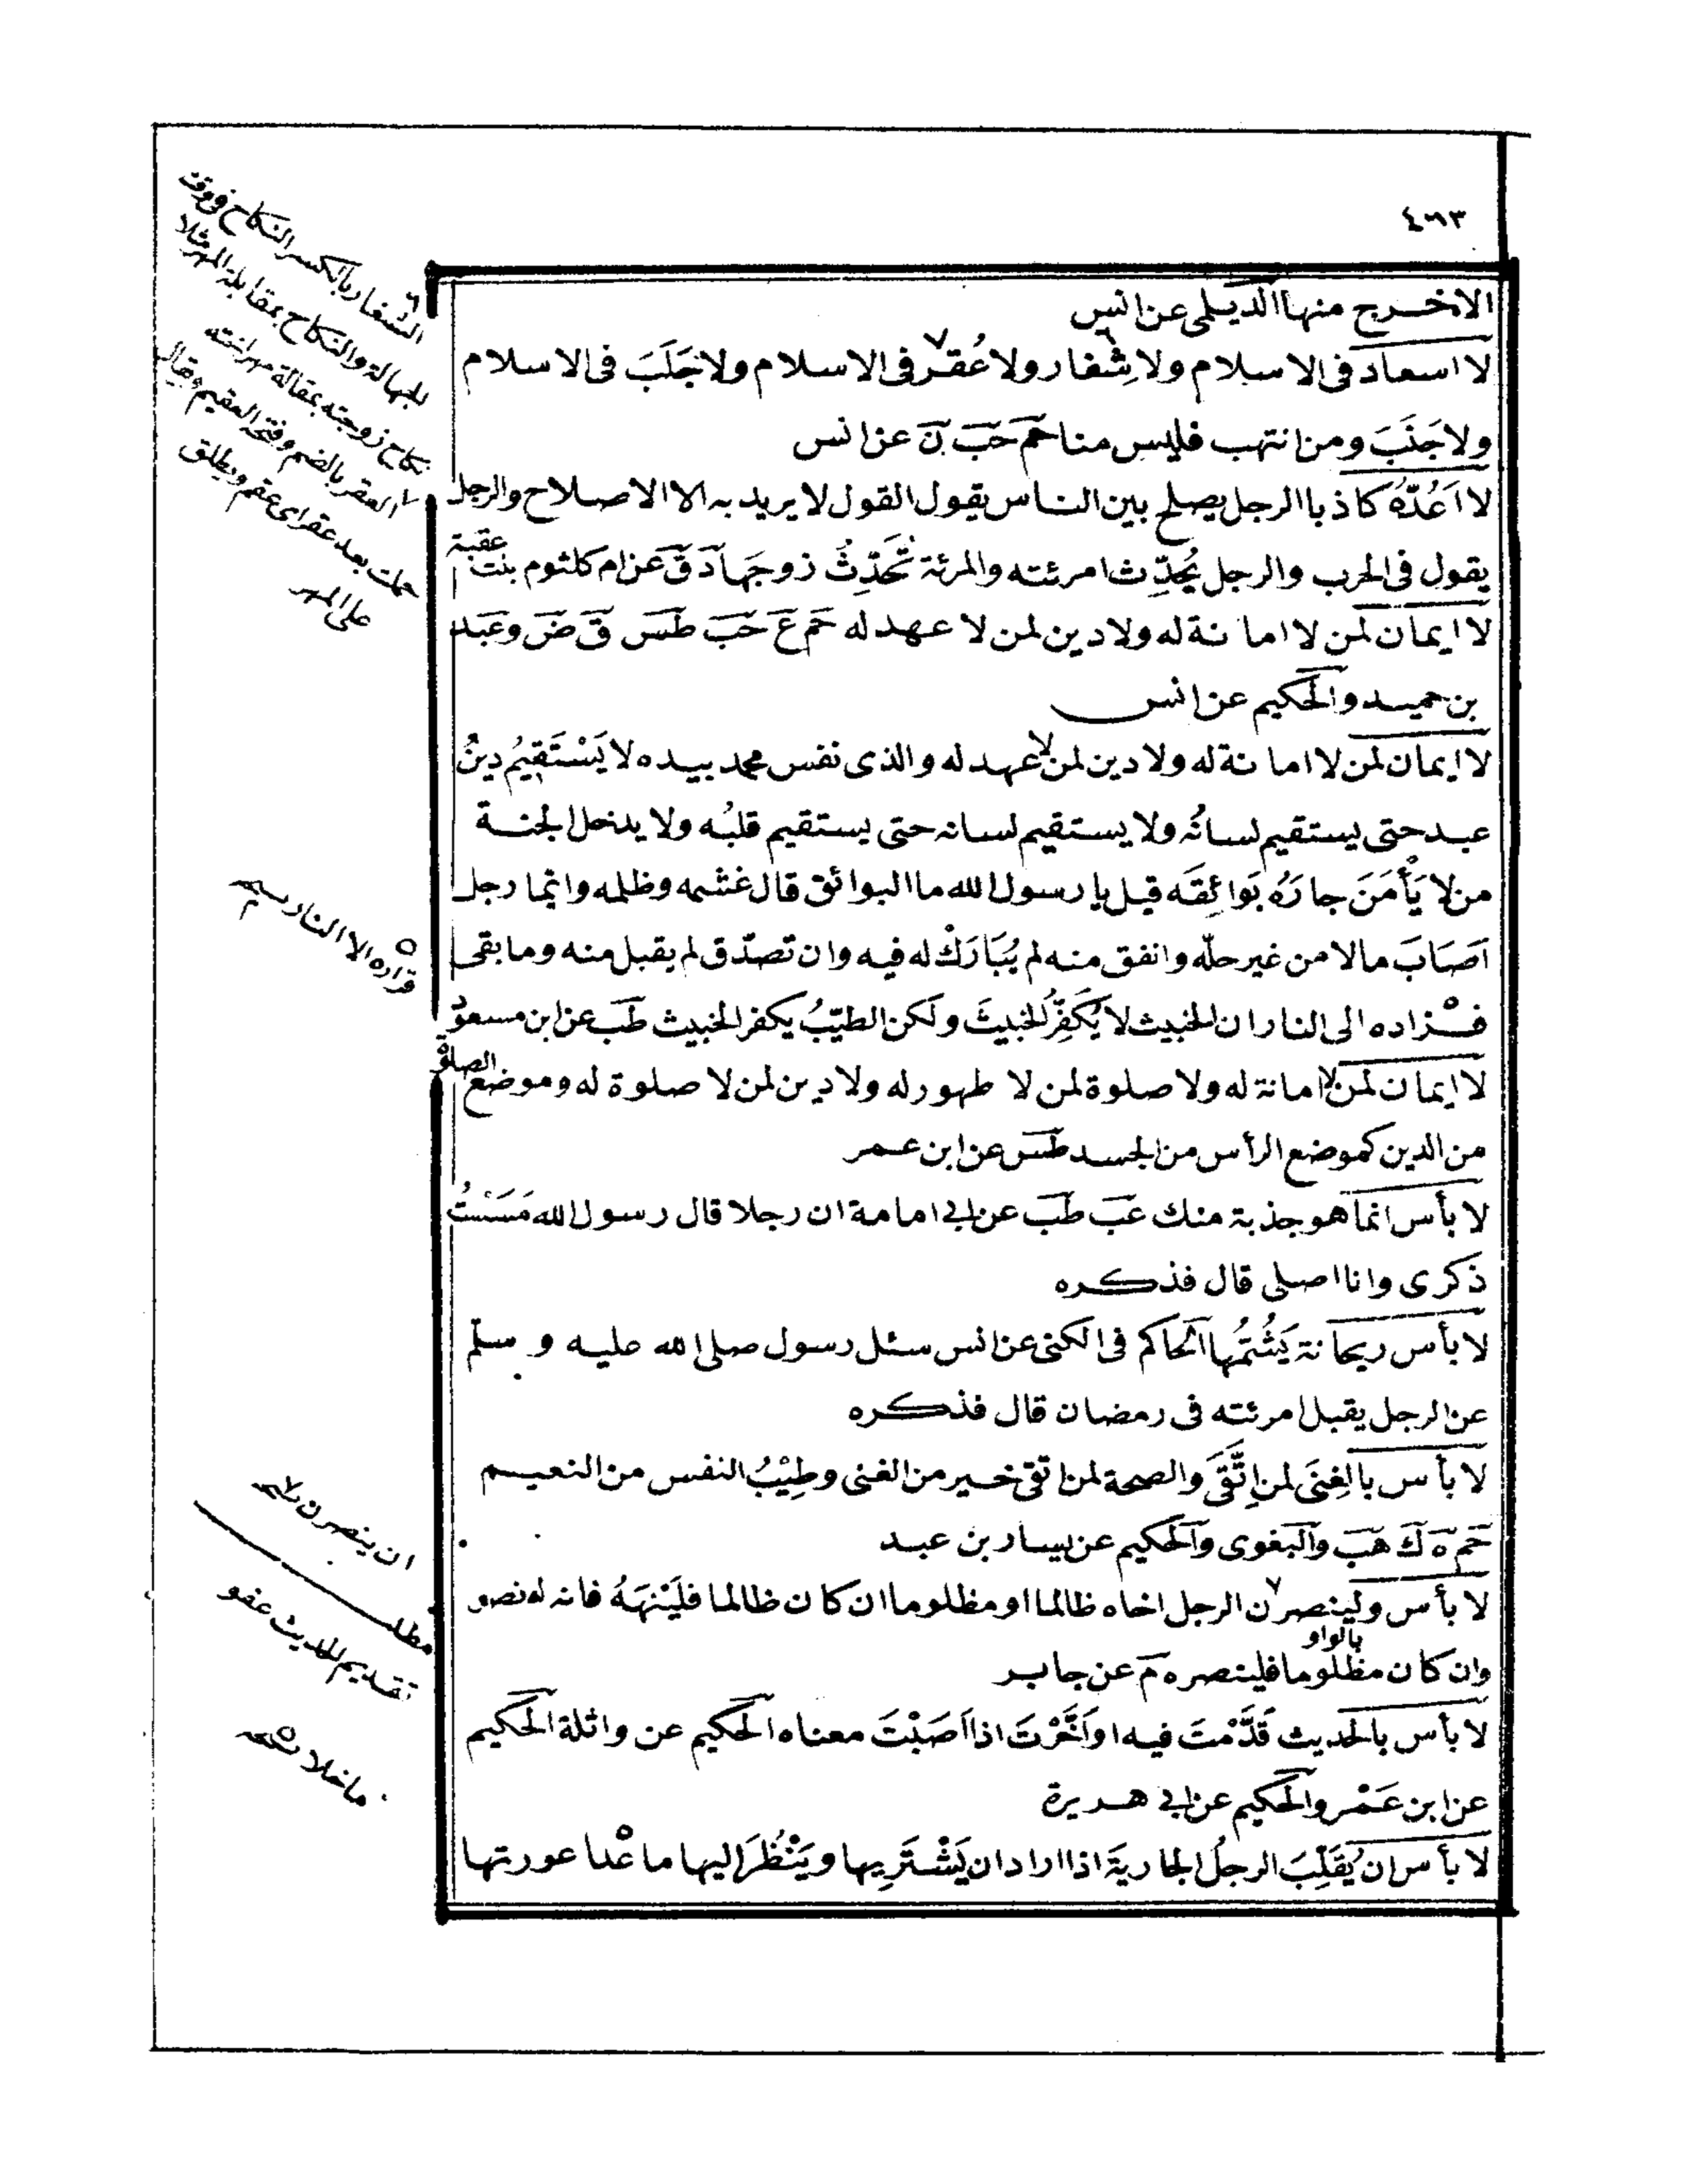 ٤٦٣
الاخرج منها الديلمى عن انس
لا اسعاد فى الاسلام ولا شِغار ولا عُقر فى الاسلام ولا جَلَبَ فى الاسلام
ولا جَنَبَ ومن انتهب فليس منا حم حب ن عن انس
لا اَعُدُّهُ كاذبا الرجل يصلح بين الناس يقول القول لا يريد به الا الاصلاح والرجل
يقول فى الحرب والرجل يُحدِّث امرئته والمرئة تُحَدِّثُ زوجَها د ق عن ام كلثوم بنت عقبة
لا ايمان لمن لا امانة له ولا دين لمن لا عهد له حم ع حب طس ق ض وعبد
بن حميد والحكيم عن انس
لا ايمان لمن لا امانة له ولا دين لمن لا عهد له والذى نفس محمد بيده لا يَسْتَقِيمُ دينُ
عبد حتى يستقيم لسانُه ولا يستقيم لسانه حتى يستقيم قلبُه ولا يدخل الجنة
من لا يَأْمَنَ جارُهُ بَوائِقَه قيل يا رسول الله ما البوائق قال غشمه وظلمه وانما رجل
اَصَابَ مالا من غير حلّه وانفق منه لم يُبَارَكْ له فيه وان تصدّق لم يقبل منه وما بقى
فزاده الى النار ان الخبيث لا يُكَفِّرُ الخبيثَ ولكن الطيّبُ يكفر الخبيث طب عن ابن مسعود
لا ايمان لمن لا امانة له ولا صلوة لمن لا طهور له ولا دين لمن لا صلوة له وموضع الصلوة
من الدين كموضع الرأس من الجسد طس عن ابن عمر
لا بأس انما هو جذبة منك عب طب عن ابى امامة ان رجلا قال رسول الله مَسَسْتُ
ذكرى وانا اصلى قال فذكره
لا بأس ريحانة يَشُمُّها الحاكم فى الكنى عن انس سئل رسول صلى الله عليه و سلم
عن الرجل يقبل امرئته فى رمضان قال فذكره
لا بأس بالغِنَى لمن اِتَّقَى والصحة لمن اتقى خير من الغنى وطِيْبُ النفس من النعيم
حم ه ك هب والبغوى والحكيم عن يسار بن عبد
لا بأس ولينصرن الرجل اخاه ظالما او مظلوما ان كان ظالما فليَنْهَهُ فانه له نصر
بالواو
وان كان مظلوما فلينصره م عن جابر
لا بأس بالحديث قَدَّمْتَ فيه او اَخَّرْتَ اذا اَصَبْتَ معناه الحكيم عن واثلة الحكيم
عن ابن عَمْر والحكيم عن ابى هريرة
لا بأس ان يُقَلِّبَ الرجلُ الجاريةَ اذا اراد ان يَشْتَرِيها ويَنْظُرَ اليها ما عدا عورتها
الشغار بالكسر النكاح فى وقت
الجهالة والنكاح بمقابلة المهر مثلا
العقر بالضم وفتح العقيم ويقال
على المهر
قراره الا النار
ان ينصرن
مطلب
تقديم الحديث عفو
ما خلا